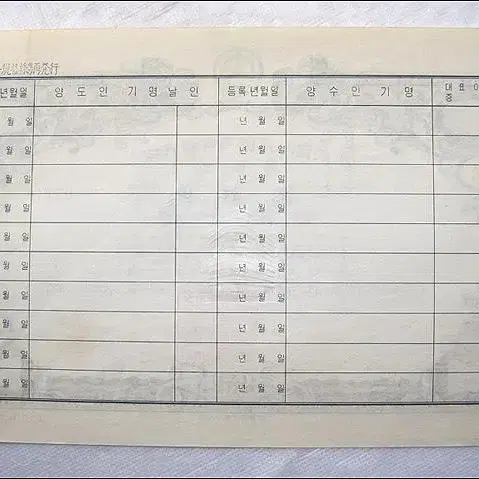 再発行
년월일 양도인 기명날인 등록년월일 양수인 기명 대표이
증
월 일 년 월 일
월 일 년 월 일
월 일 년 월 일
월 일 년 월 일
월 일 년 월 일
월 일 년 월 일
월 일 년 월 일
월 일 년 월 일
월 일 년 월 일
월 일 년 월 일